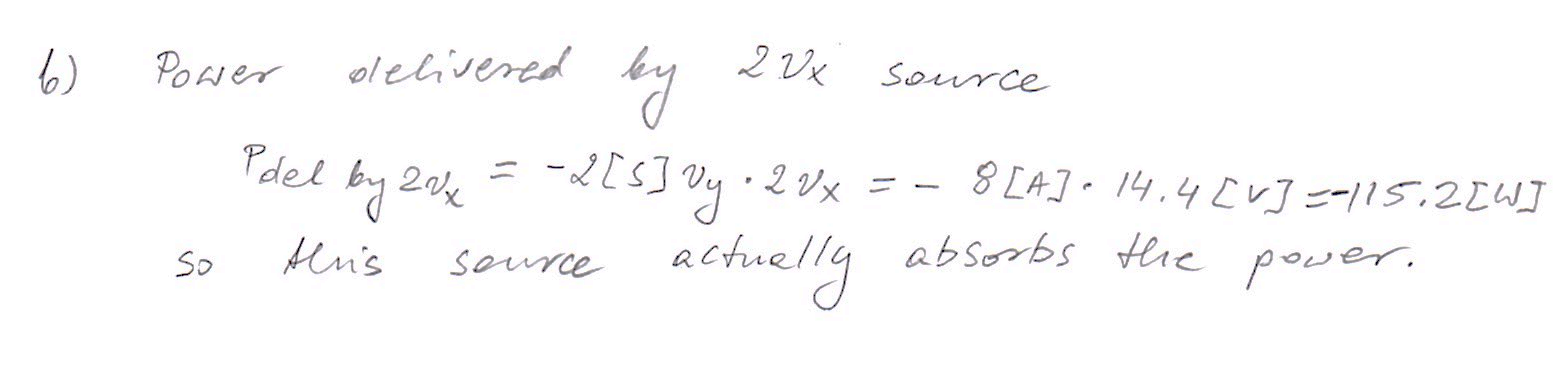 b) Power delivered by 2vx source
Pdel by 2vx = -2[S] vy · 2vx = - 8[A] · 14.4[V] = -115.2[W]
so this source actually absorbs the power.